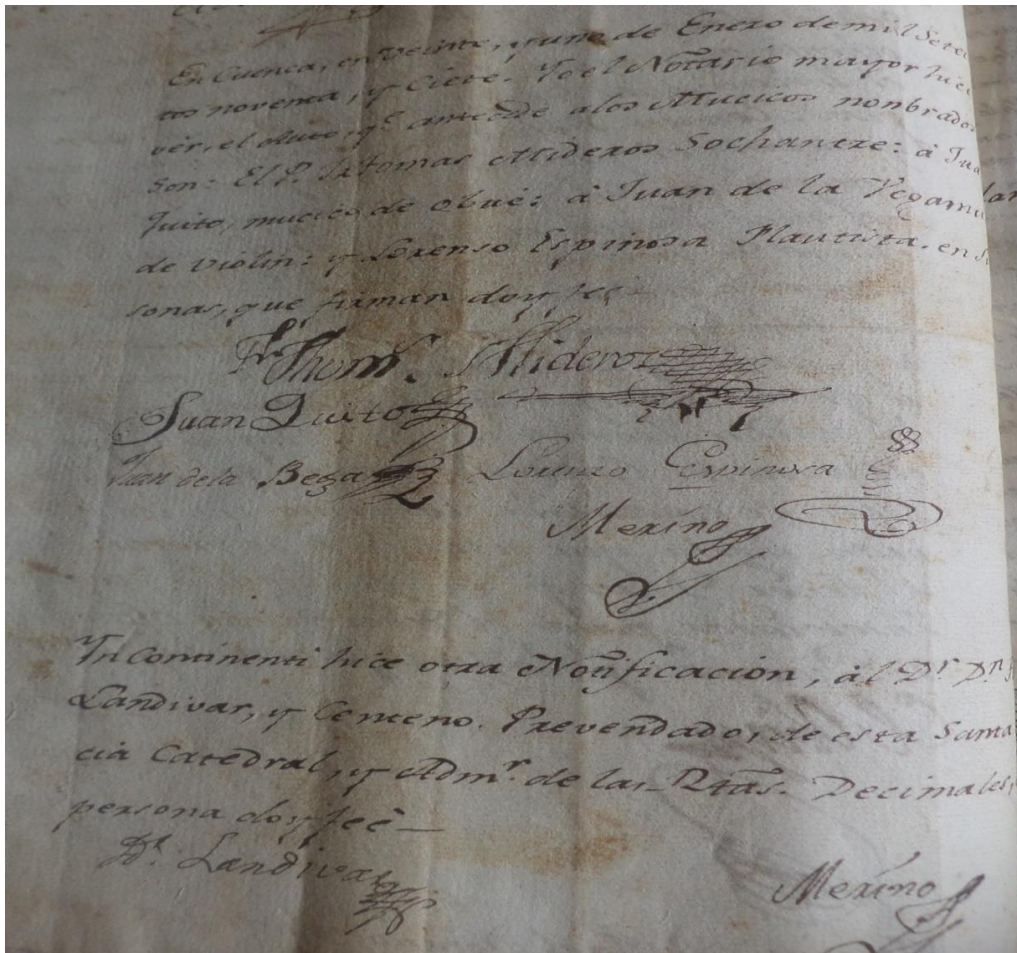 En Cuenca, en veinte, y uno de Enero de mil Sete
tos noventa, y Ciete. Yo el Notario mayor hice
ver, el Auto, qe. antecede alos Mucicos nonbrados
son: El P. Fr. Tomas Mideros Sochantre: à Jua
Quito, mucico de Obué: à Juan de la Vega mu
de violin: y Lorenso Espinosa Flautista. en s
sonas, que firman doy feè
Fr. Thoms. Mideros
Juan Quito
Juan de la Bega Lorenzo Espinosa
Merino
In Continenti hice otra Notificacion, àl Dr. Dn.
Landivar, y Centeno. Prevendado, de esta Santa
cia Catedral, y Admr. de las Rtas. Decimales,
persona doy feè
Dr. Landivar
Merino